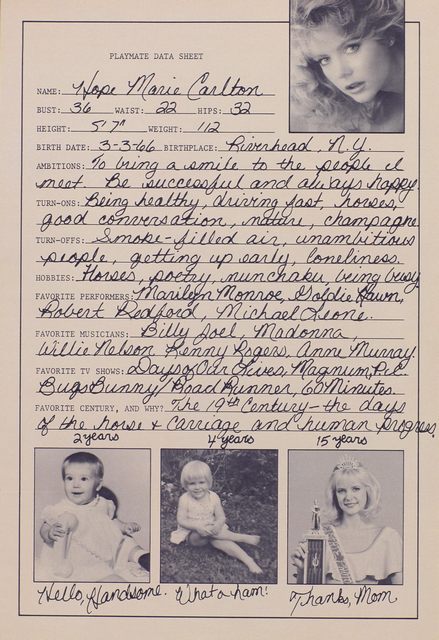 PLAYMATE DATA SHEET
NAME: Hope Marie Carlton
BUST: 36 WAIST: 22 HIPS: 32
HEIGHT: 5'7" WEIGHT: 112
BIRTH DATE: 3-3-66 BIRTHPLACE: Riverhead, N.Y.
AMBITIONS: To bring a smile to the people I
meet. Be successful and always happy.
TURN-ONS: Being healthy, driving fast, horses,
good conversation, nature, champagne
TURN-OFFS: Smoke-filled air, unambitious
people, getting up early, loneliness.
HOBBIES: Horses, poetry, nunchaku, being busy
FAVORITE PERFORMERS: Marilyn Monroe, Goldie Hawn,
Robert Redford, Michael Leone.
FAVORITE MUSICIANS: Billy Joel, Madonna,
Willie Nelson, Kenny Rogers, Anne Murray.
FAVORITE TV SHOWS: Days of Our Lives, Magnum, P.I.
Bugs Bunny/Road Runner, 60 Minutes.
FAVORITE CENTURY, AND WHY? The 19th Century - the days
of the horse + carriage and human progress.
2 years 4 years 15 years
Hello, Handsome. What a ham! Thanks, Mom